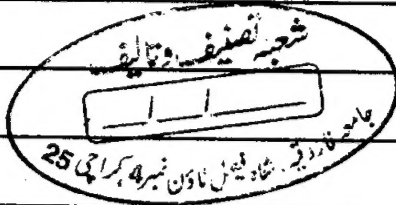 شعبہ تصنیف و تالیف
__/__/____
جامعہ فاروقیہ، شاہ فیصل ٹاؤن نمبر 4 کراچی 25